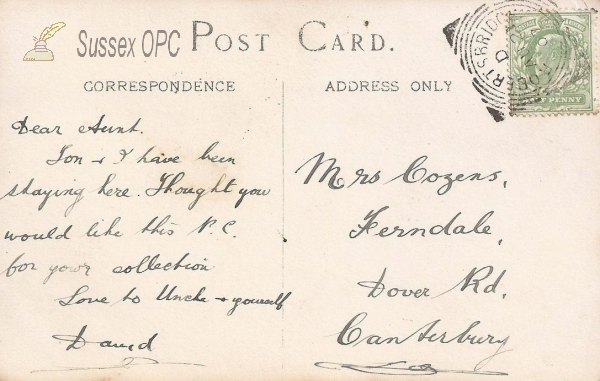 Sussex OPC
POST CARD.
CORRESPONDENCE
ADDRESS ONLY
Dear Aunt.
Ton & I have been
staying here. Thought you
would like this P.C.
for your collection
Love to Uncle & yourself
David
Mrs Cozens,
Ferndale,
Dover Rd,
Canterbury
ROBERTSBRIDGE
PENNY